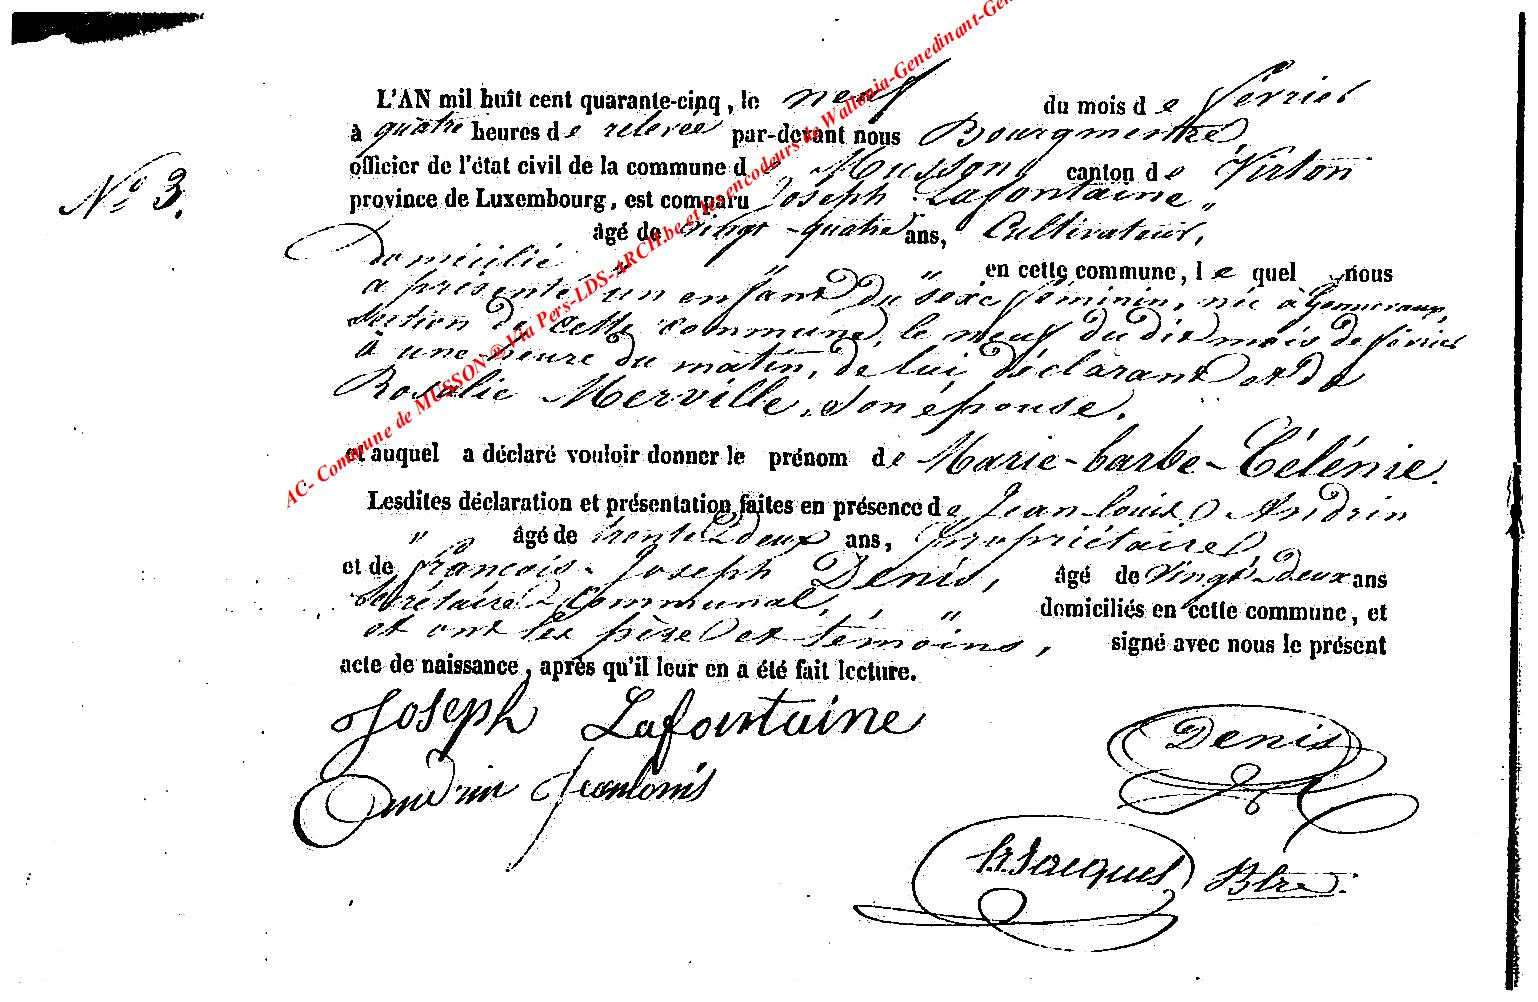 L'AN mil huit cent quarante-cinq, le neuf du mois de février
à quatre heures de relevée par-devant nous Bourgmestre,
officier de l'état civil de la commune de Musson, canton de Virton
N.° 3.
province de Luxembourg, est comparu Joseph Lafontaine "
âgé de vingt-quatre ans, Cultivateur,
domicilié " " en cette commune, le quel nous
a présenté un enfant du sexe féminin, née à Gennevaux,
section de cette commune, le neuf du dit mois de février
à une heure du matin, de lui déclarant et de
Rosalie Merville, son épouse.
et auquel a déclaré vouloir donner le prénom de Marie-barbe-Célénie.
Lesdites déclaration et présentation faites en présence de Jean louis Andrin
" âgé de trente deux ans, propriétaire,
et de françois-Joseph Denis, âgé de vingt-deux ans
Secrétaire Communal, " domiciliés en cette commune, et
et ont les père et témoins, signé avec nous le présent
acte de naissance, après qu'il leur en a été fait lecture.
Joseph Lafontaine
Denis
Andrin Jeanlouis
Jacques Btre
AC- Commune de MUSSON ® Via Pers-LDS-ARCH.be et les encodeurs de Wallonia-Genedinant-Gen